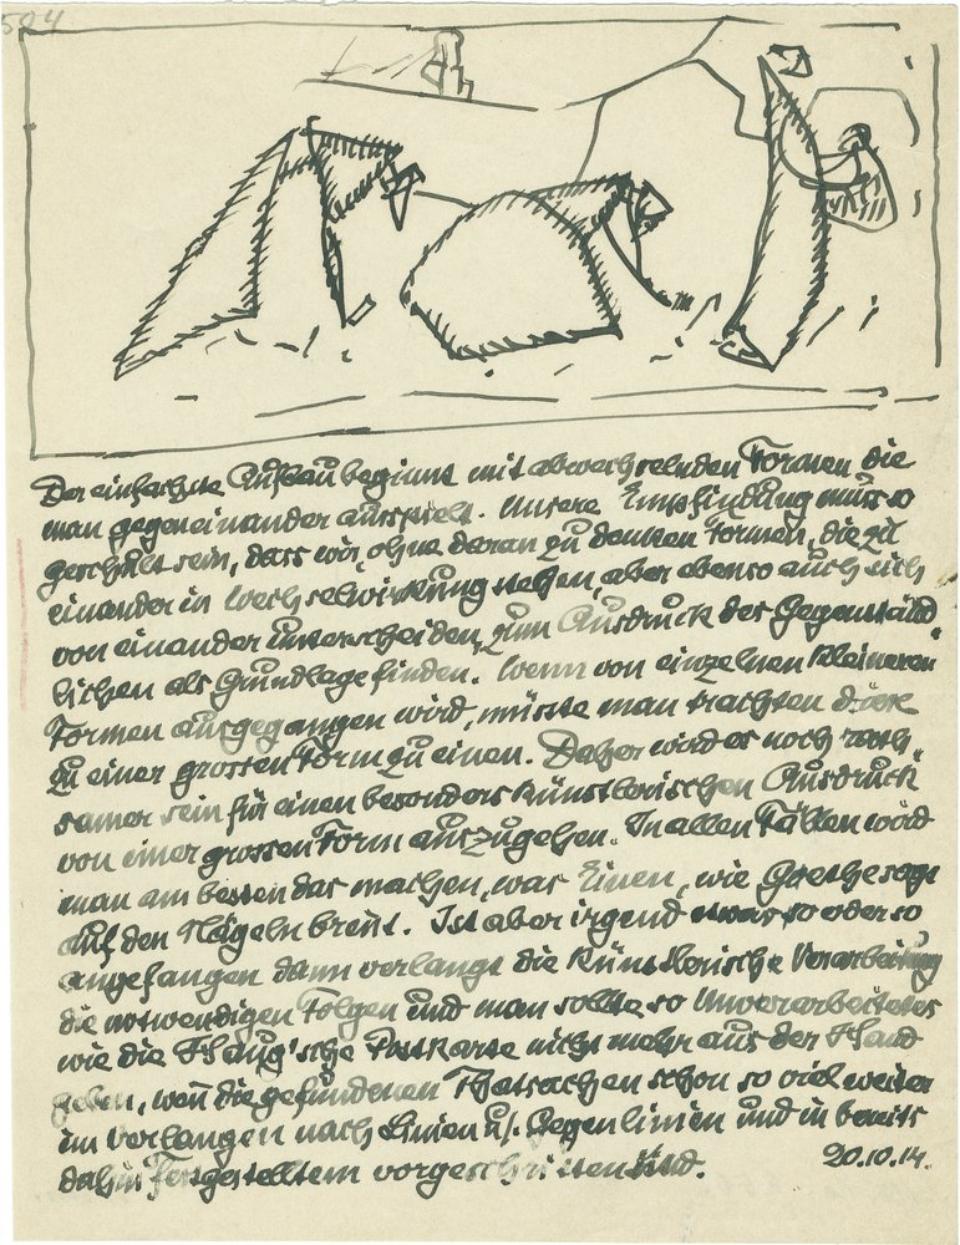 504
Der einfachste Aufbau beginnt mit abwechselnden Formen die
man gegeneinander ausspielt. Unsere Empfindung muss so
geschult sein, dass wir, ohne daran zu denken Formen, die zu
einander in Wechselwirkung stehen, aber ebenso auch sich
von einander unterscheiden, zum Ausdruck des Gegenständ-
lichen als Grundlage finden. Wenn von einzelnen kleineren
Formen ausgegangen wird, müsste man trachten diese
zu einer grossen Form zu einen. Daher wird es noch rath-
samer sein für einen besonders künstlerischen Ausdruck
von einer grossen Form auszugehen. In allen Fällen wird
man am besten das machen, was Einen, wie Goethe sagt
auf den Nägeln brent. Ist aber irgend etwas so oder so
angefangen dann verlangt die künstlerische Verarbeitung
die notwendigen Folgen und man sollte so Unverarbeitetes
wie die Postkarte nicht mehr aus der Hand
geben, weñ die gefundenen Thatsachen schon so viel weiter
im Verlangen nach Linien u. Gegenlinien und in bereits
dahin festgestelltem vorgeschritten sind.
20.10.14.